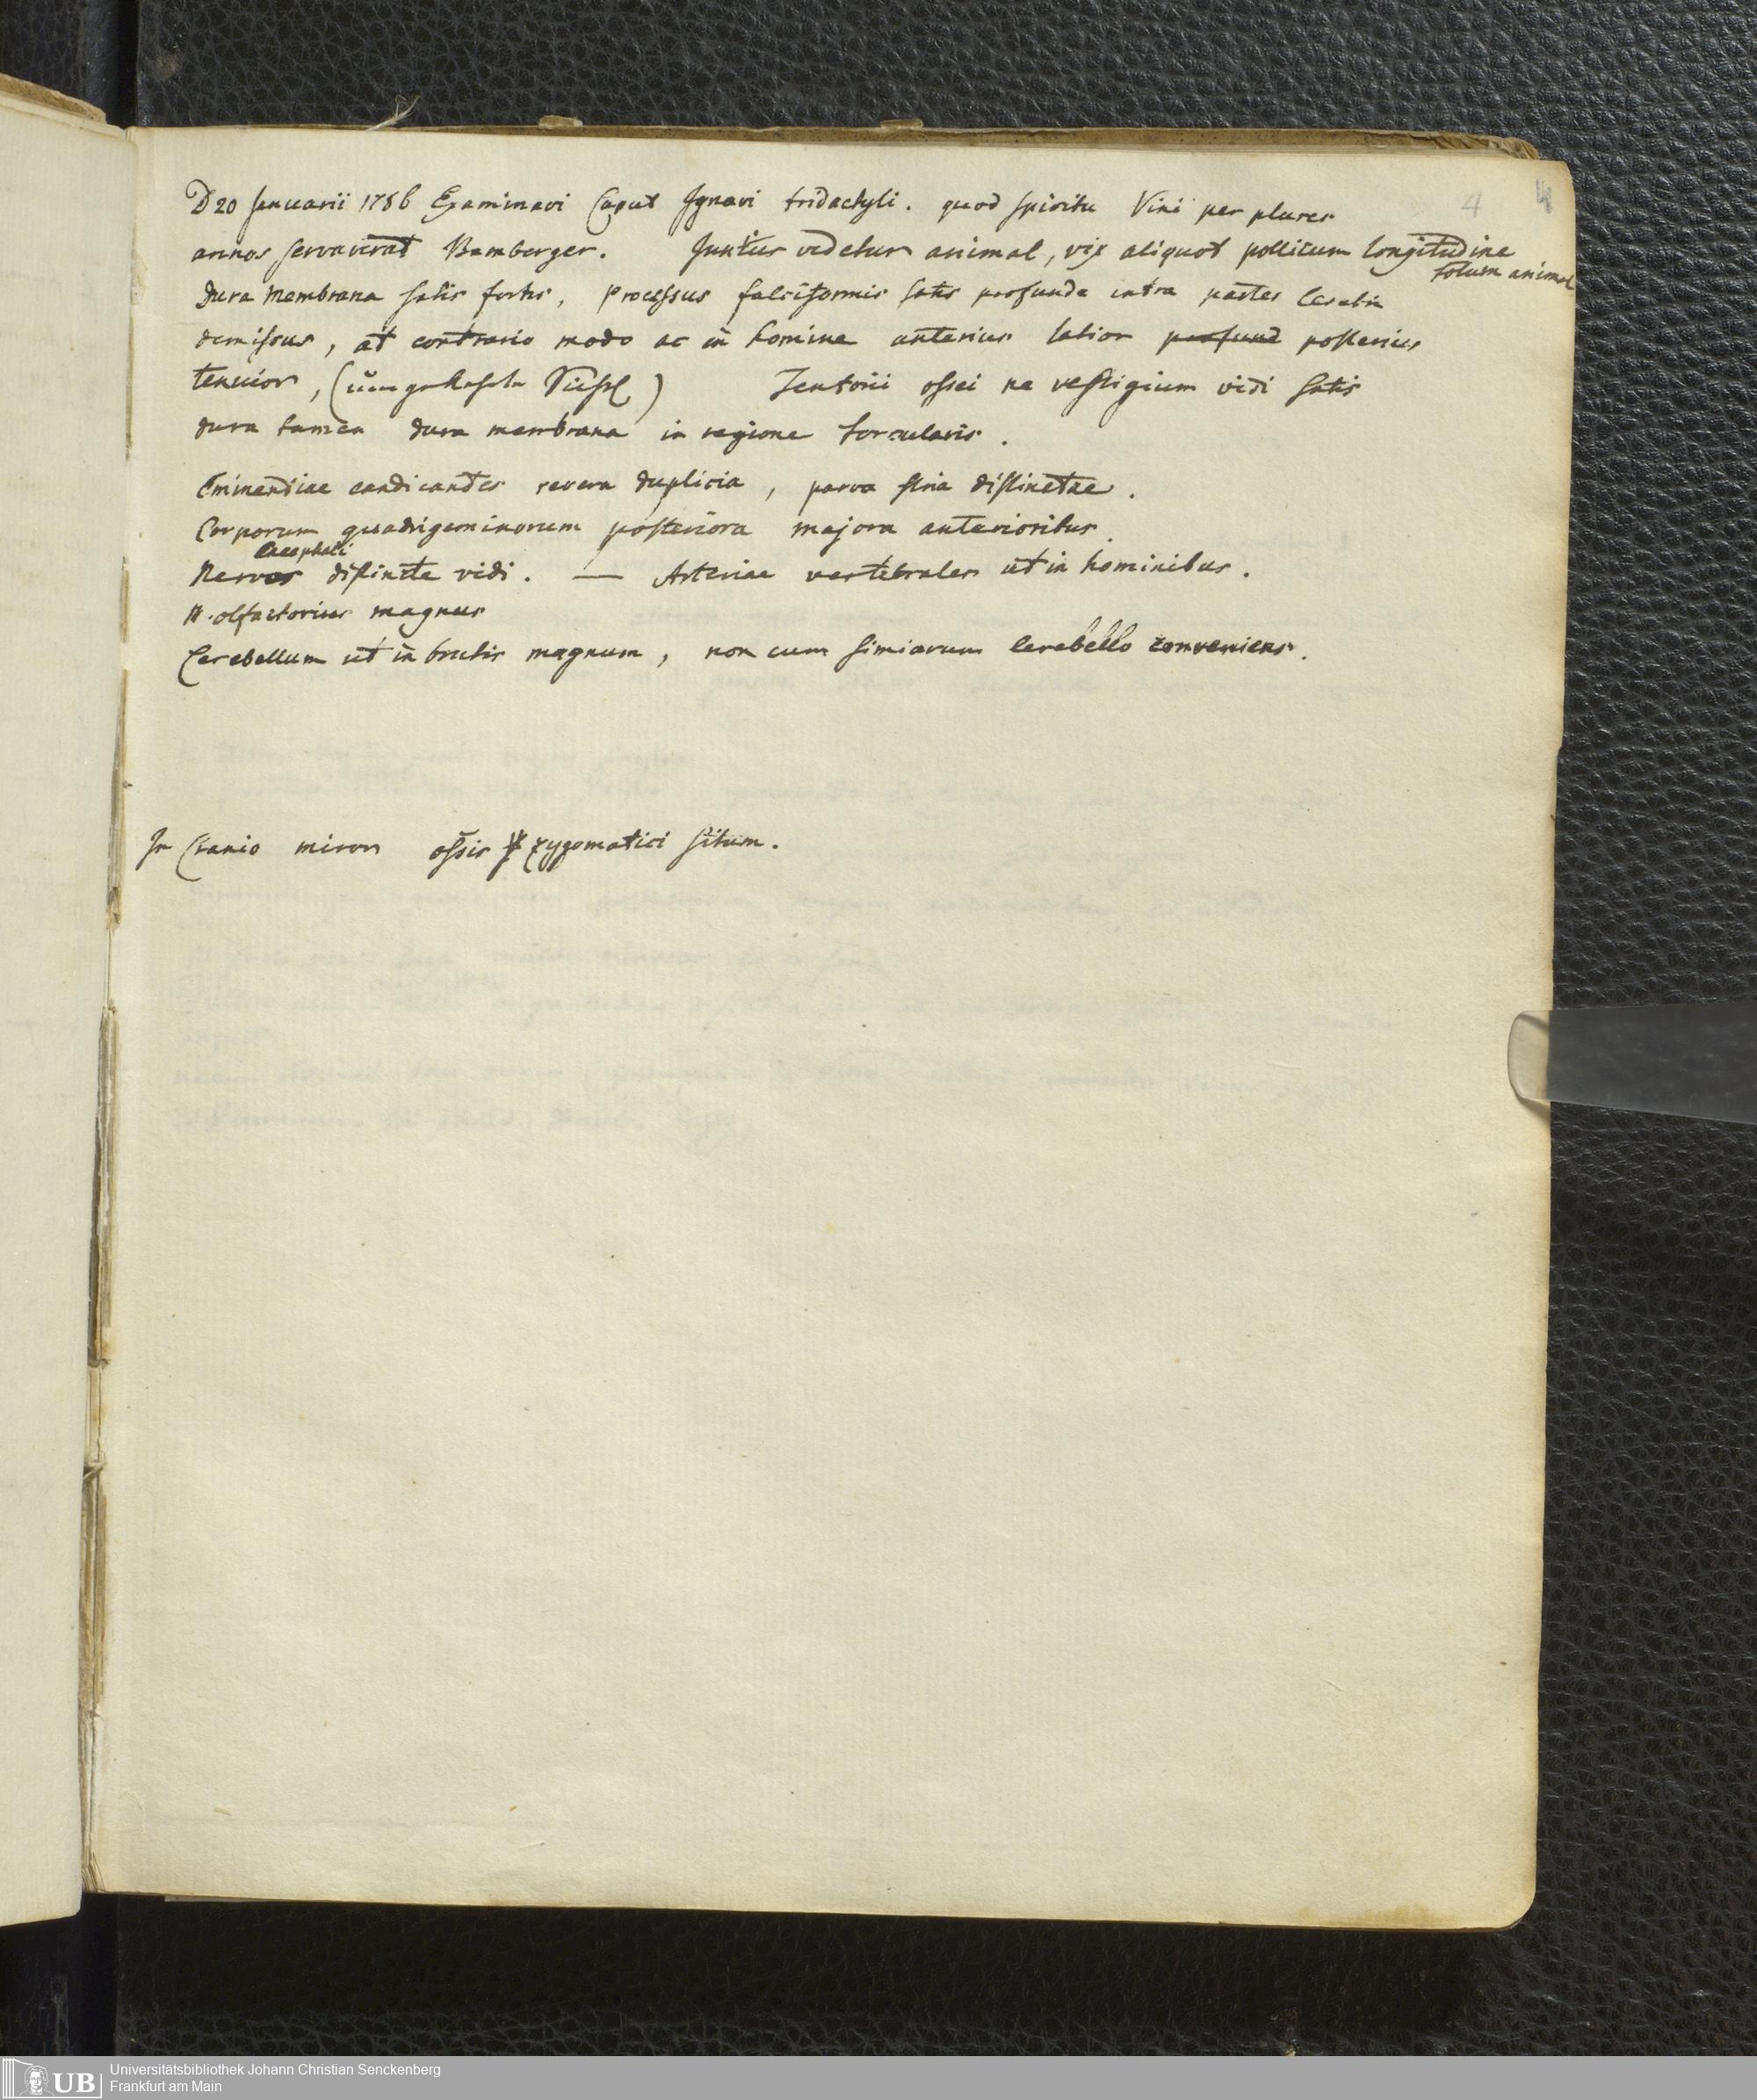 4
D 20 Januarii 1786 Examinavi Caput Ignavi tridactyli. quod spiritu Vini per plures
annos servaverat Bamberger. Junius videtur animal, vix aliquot pollicum longitudine
totum animal
Dura Membrana satis fortis, Processus falciformis satis profunde intra partes Cerebri
demissus, at contrario modo ac in homine anterius latior profund posterius
tenuior, (umgekehrte Sichel) Tentorii ossei ne vestigium vidi satis
dura tamen dura membrana in regione torcularis.
Eminentiae candicantes revera duplicia, parva stria distinctae.
Corporum quadrigeminorum posteriora majora anterioribus.
Encephali
Nervos distincte vidi. — Arteriae vertebrales ut in hominibus.
N. olfactorius magnus
Cerebellum ut in brutis magnum, non cum simiarum Cerebello conveniens.
In Cranio miror ossis zygomatici situm.
UB Universitätsbibliothek Johann Christian Senckenberg
Frankfurt am Main